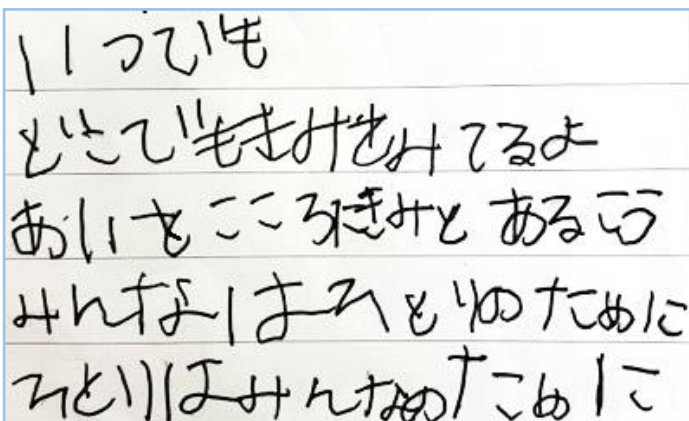 いつでも
どこでもきみをみてるよ
あいをこころにきみとあるこう
みんなはひとりのために
ひとりはみんなのために